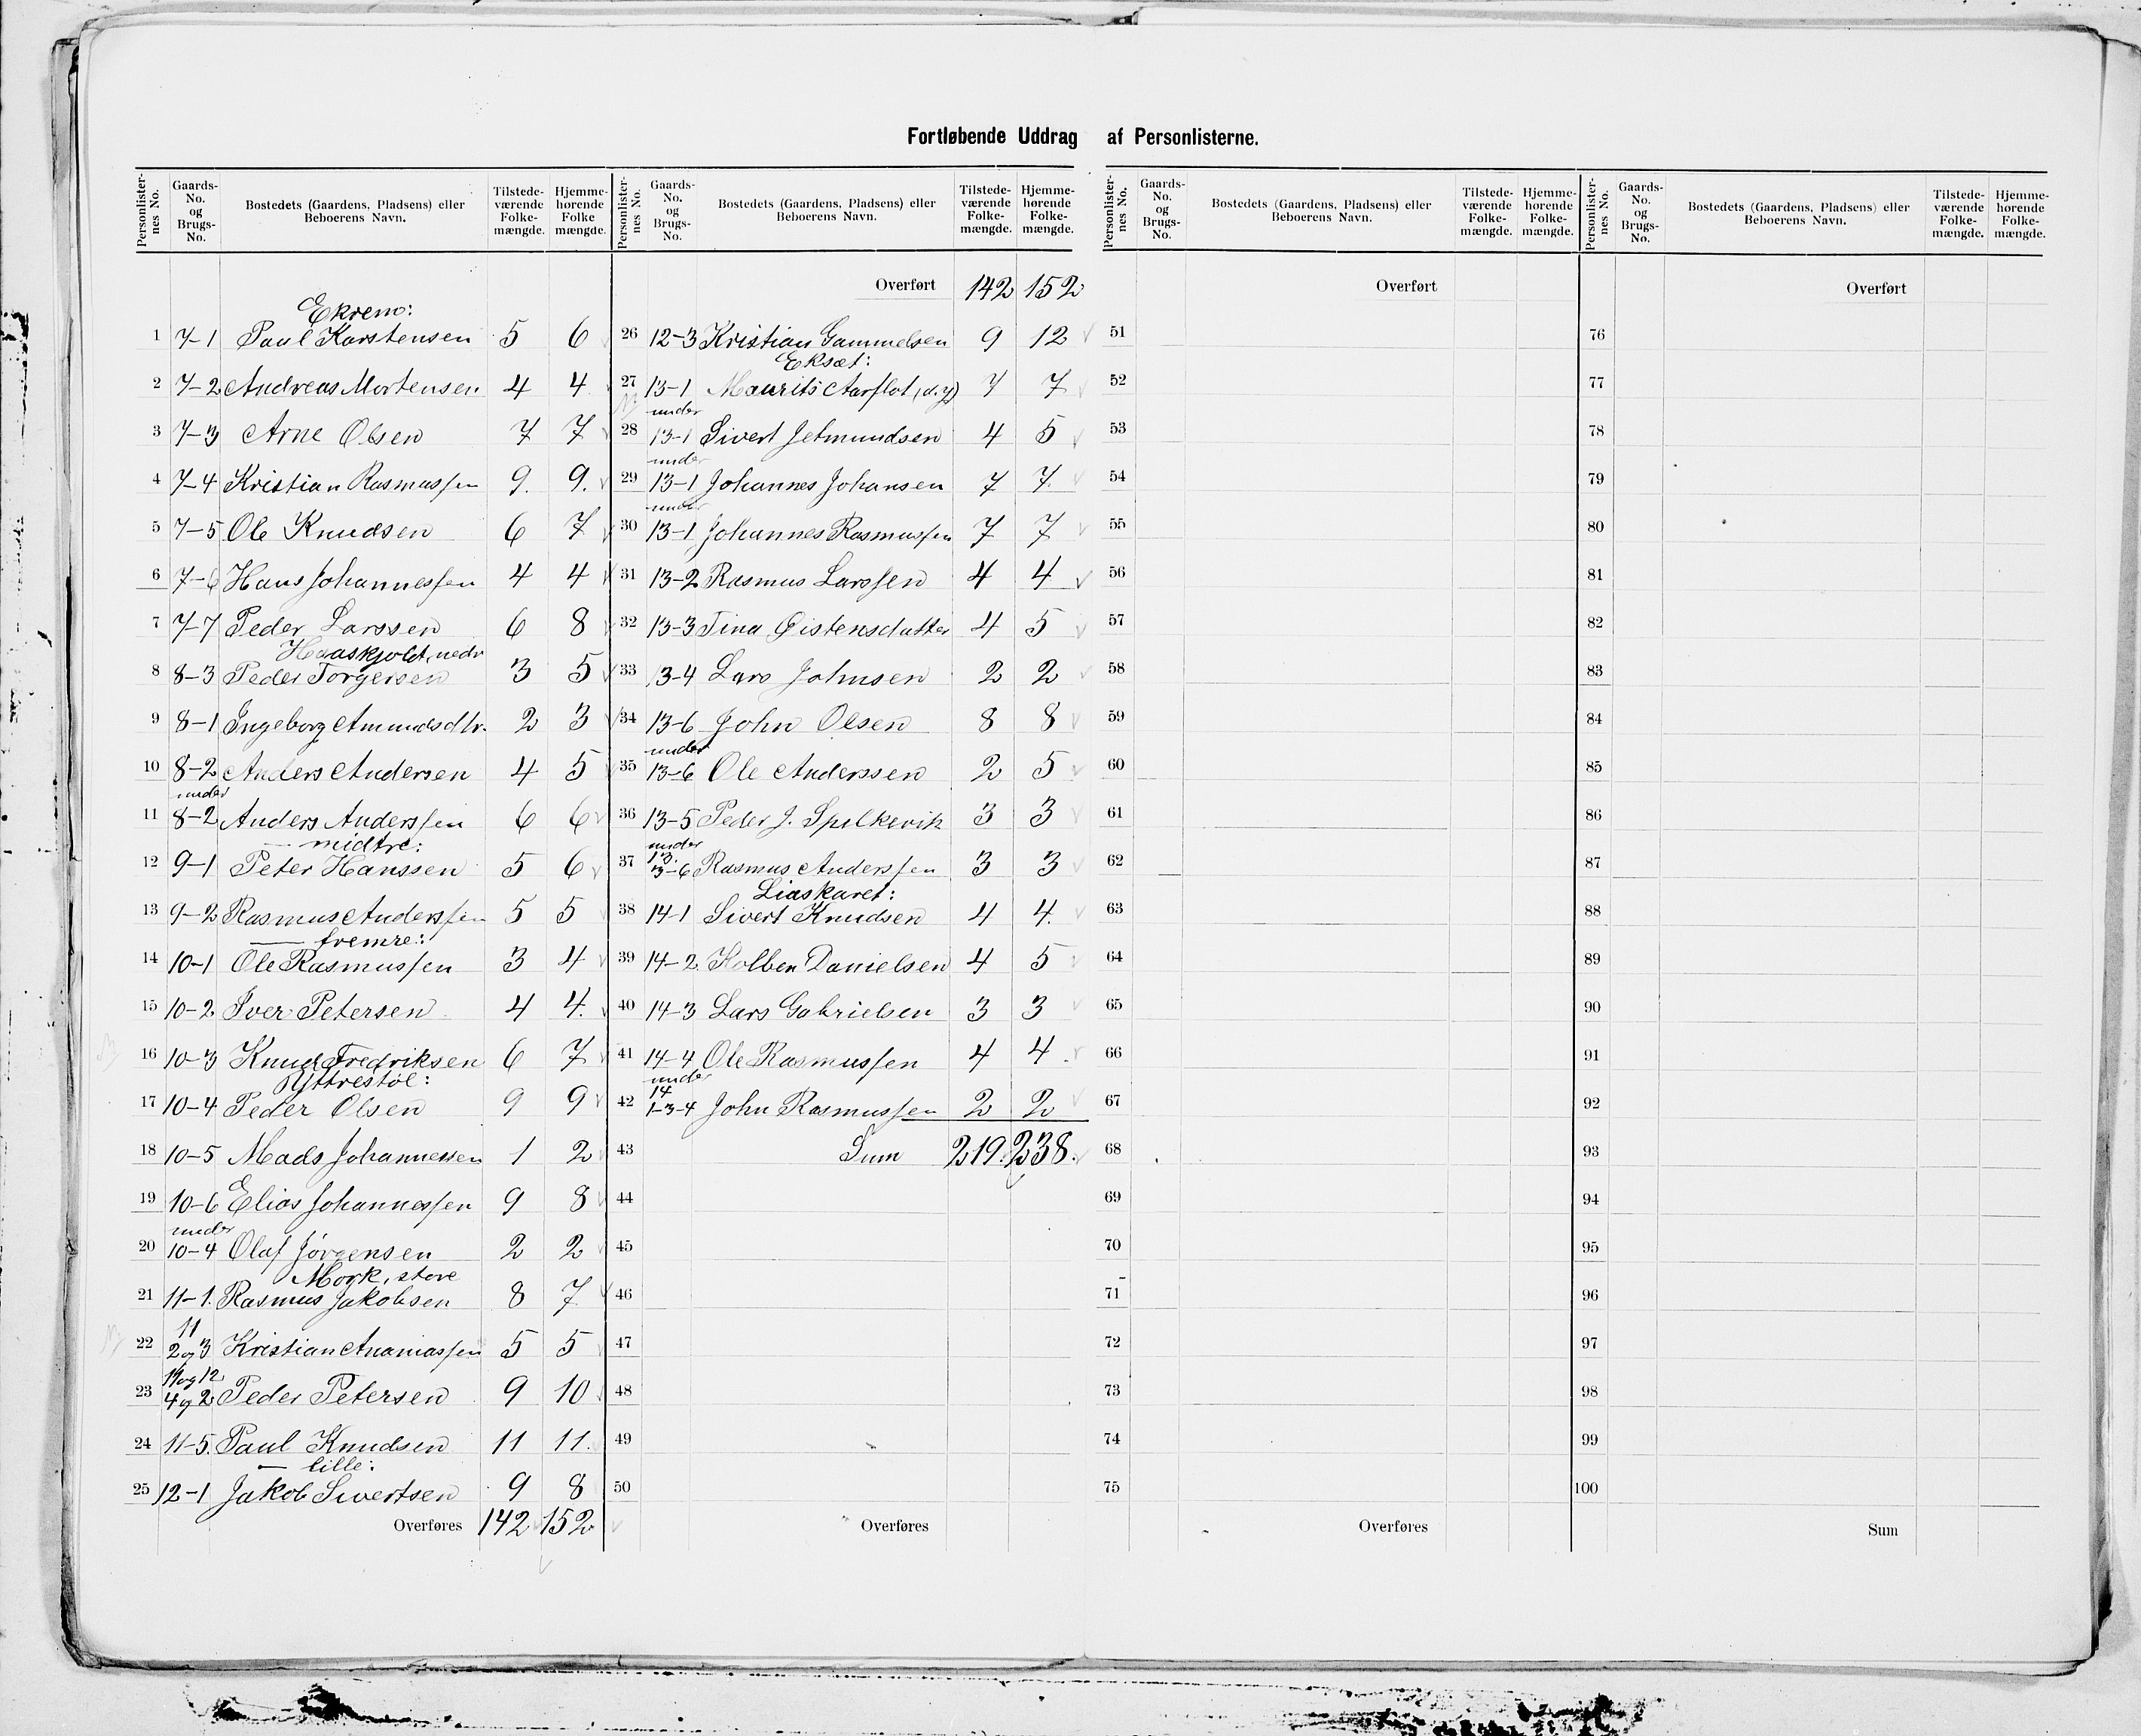 Fortløbende Uddrag af Personlisterne.
Personlisternes No. | Gaards-No. og Brugs-No. | Bostedets (Gaardens, Pladsens) eller Beboerens Navn. | Tilstedeværende Folkemængde. | Hjemmehørende Folkemængde.
Ekrem:
1 7-1 Paul Karstensen 5 6
2 7-2 Andreas Mortensen 4 4
3 7-3 Arne Olsen 7 7
4 7-4 Kristian Rasmussen 9. 9.
5 7-5 Ole Knudsen 6 7
6 7-6 Hans Johannessen 4 4
7 7-7 Peder Larssen 6 8
Haaskjold, nedr
8 8-3 Peder Torgersen 3 5
9 8-1 Ingeborg Amundsdtr. 2 3
10 8-2 Anders Andersen 4 5
under
11 8-2 Anders Anderssen 6 6
— midtre:
12 9-1 Peter Hanssen 5 6
13 9-2 Rasmus Anderssen 5 5
— fremre:
14 10-1 Ole Rasmussen 3 4
15 10-2 Iver Petersen 4 4.
16 10-3 Knud Fredriksen 6 7
Yttrestøl:
17 10-4 Peder Olsen 9 9
18 10-5 Mads Johannessen 1 2
19 10-6 Elias Johannessen 9 8
under
20 10-4 Olaf Jörgensen 2 2
Mork, store
21 11-1. Rasmus Jakobsen 8 7
11
22 2 og 3 Kristian Ananiassen 5 5
11 og 12
23 4 og 2 Peder Petersen 9 10
24 11-5. Paul Knudsen 11 11.
— lille:
25 12-1 Jakob Sivertsen 9 8
Overføres 142 152
Overført 142 152
26 12-3 Kristian Gammelsen 9 12
Eksæt:
27 13-1 Maurits Aarflot (d.y) 7 7
under
28 13-1 Sivert Jetmundsen 4 5
under
29 13-1 Johannes Johansen 7 7.
under
30 13-1 Johannes Rasmussen 7 7
31 13-2 Rasmus Larssen 4 4
32 13-3 Tina Øistensdatter 4 5
33 13-4 Lars Johnsen 2 2
34 13-6 John Olsen 8 8
under
35 13-6 Ole Anderssen 2 5
36 13-5 Peder J. Spilkevik 3 3
under
13.
37 3-6 Rasmus Anderssen 3 3
Liaskaret:
38 14-1 Sivert Knudsen 4 4.
39 14-2 Kolben Danielsen 4 5
40 14-3 Lars Gabrielsen 3 3
41 14-4 Ole Rasmussen 4 4
under
14
42 1-3-4 John Rasmussen 2 2
43 Sum 219. 238.
44
45
46
47
48
49
50
Overføres
Personlisternes No. | Gaards-No. og Brugs-No. | Bostedets (Gaardens, Pladsens) eller Beboerens Navn. | Tilstedeværende Folkemængde. | Hjemmehørende Folkemængde.
Overført
51
52
53
54
55
56
57
58
59
60
61
62
63
64
65
66
67
68
69
70
71
72
73
74
75
Overføres
Overført
76
77
78
79
80
81
82
83
84
85
86
87
88
89
90
91
92
93
94
95
96
97
98
99
100
Sum